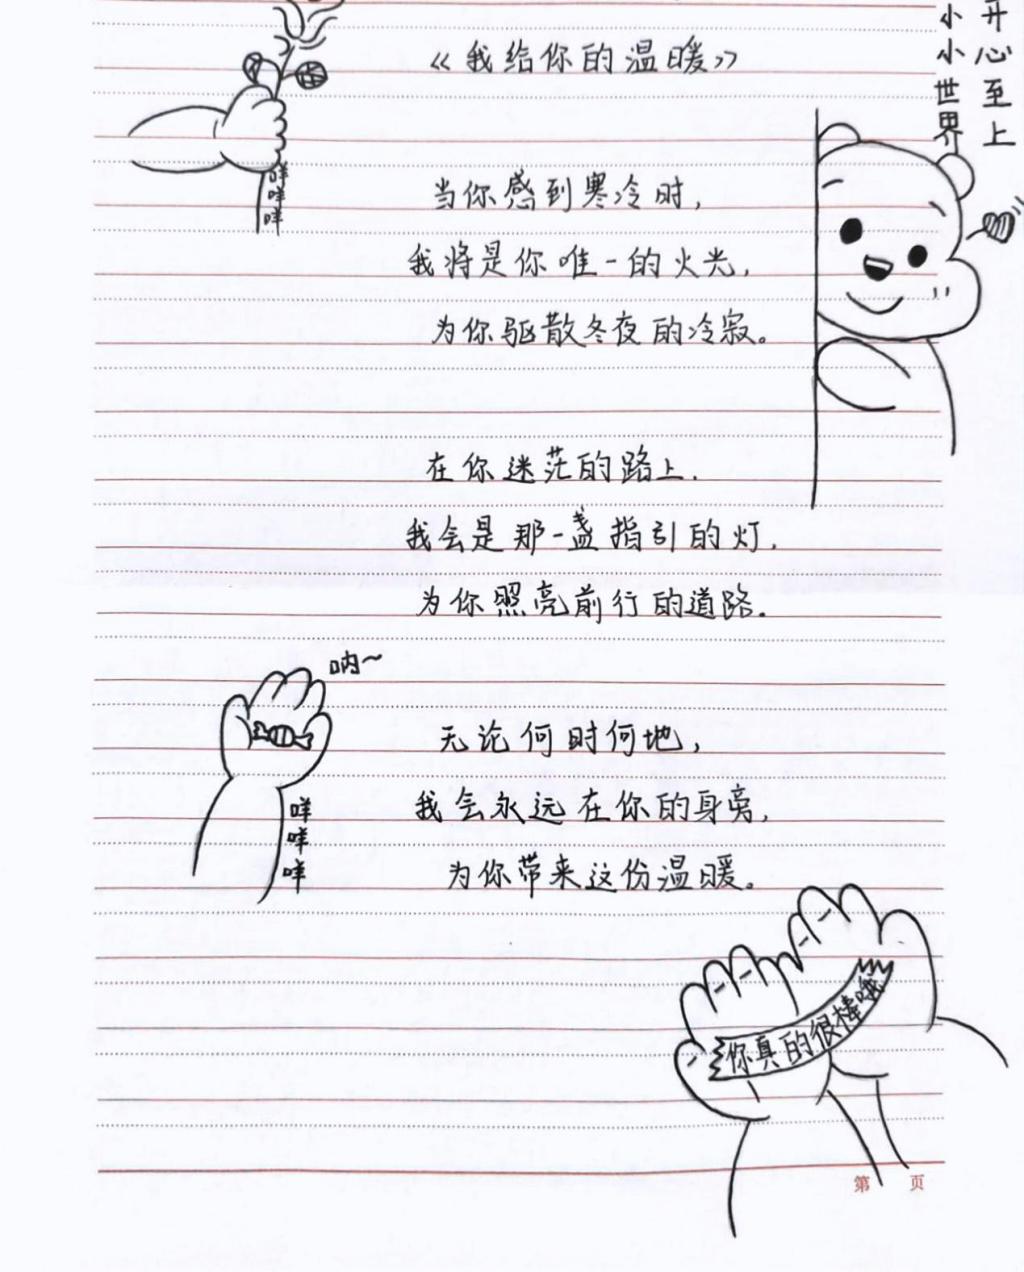 开心至上
小小世界
《我给你的温暖》
咩咩咩
当你感到寒冷时，
我将是你唯一的火光，
为你驱散冬夜的冷寂。
在你迷茫的路上，
我会是那一盏指引的灯，
为你照亮前行的道路。
呐～
无论何时何地，
我会永远在你的身旁，
咩咩咩
为你带来这份温暖。
你真的很棒哦
第 页